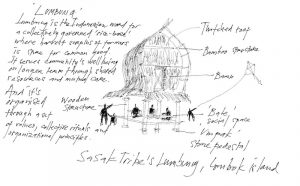 'Lumbung'
Lumbung is the Indonesian word for
a collectively governed rice-barn
where harvest surplus of farmers
is share for common good.
It serves community's well being
in longer term through shared
resources and mutual care.
And it's
organised
through a set
of values, collective rituals and
organizational principles.
Wooden
Structure
Thatched roof
Bamboo structure
'Bale'
Social space
'Umpak'
stone pedestal
Sasak Tribe's Lumbung, Lombok island